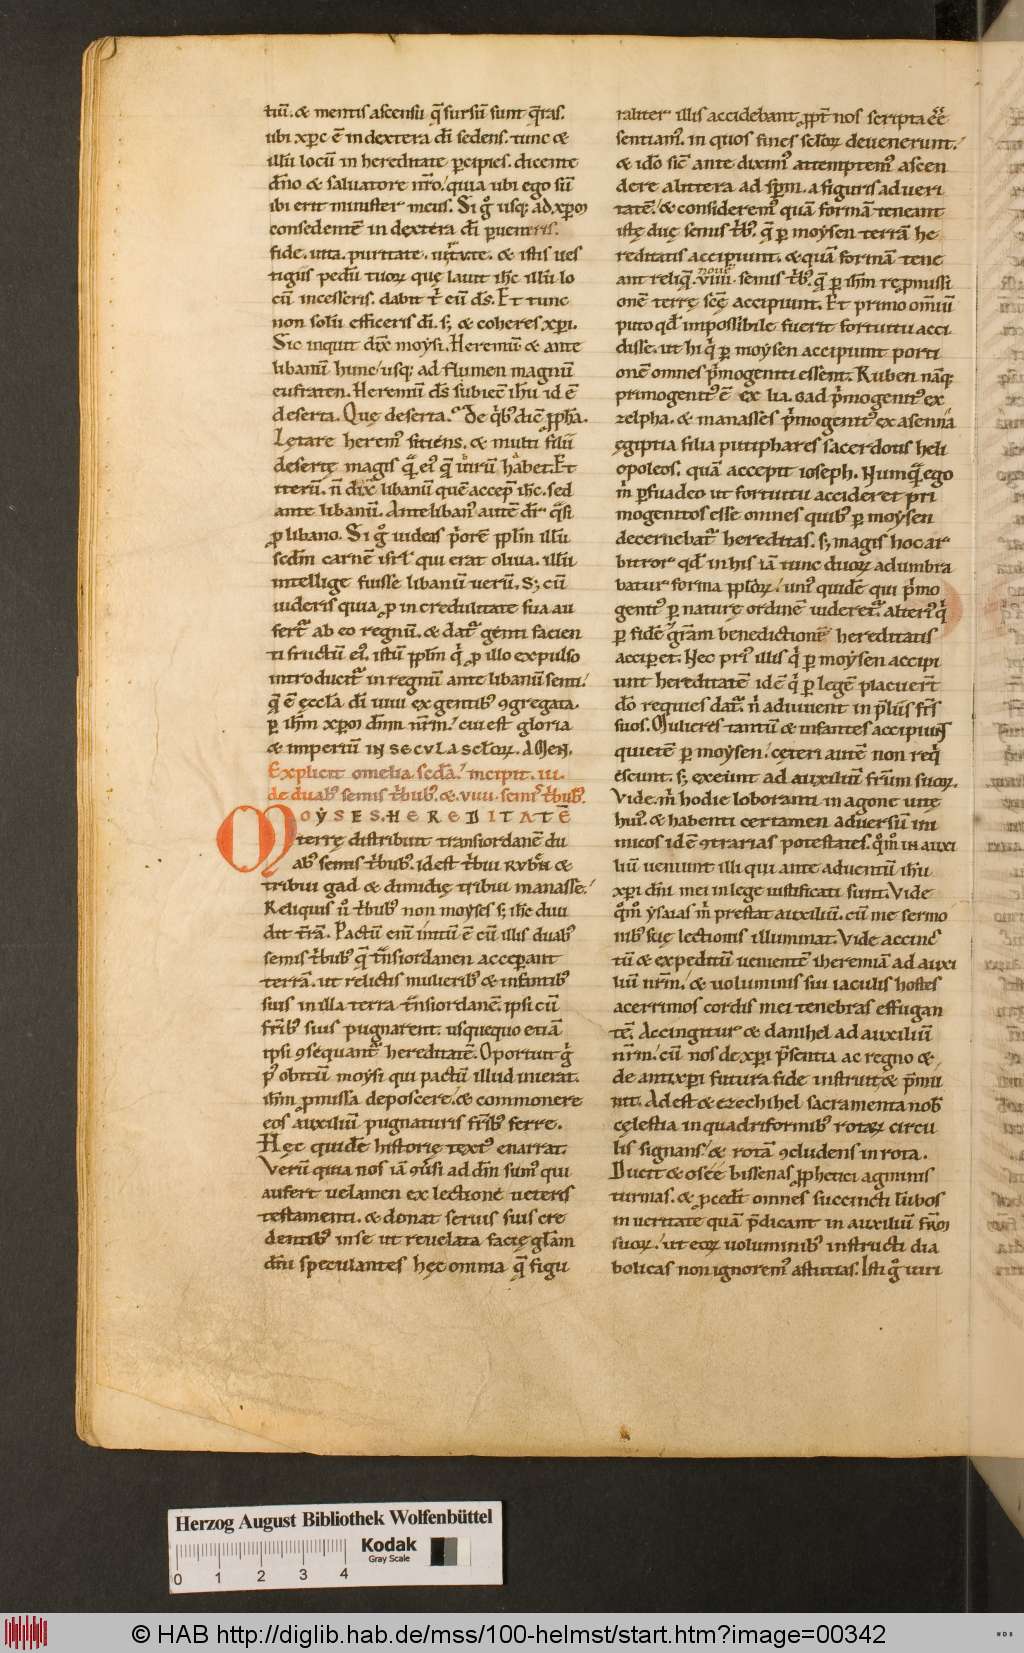 tiū. & mentis ascensu q̄ sursū sunt q̄ras.
ubi xp̄c ē in dextera dī sedens. tunc &
illū locū in hereditate ꝑcipies. dicente
dn̄o & saluatore nr̄o. quia ubi ego sū
ibi erit minister meus. Si gͦ usq; ad xp̄om
consedentē in dextera dī ꝑueneris.
fide. uita. puritate. uirtute. & istis ues
tigiis pedū tuoꝝ quę lauit ih̄c illū lo
cū incesseris. dabit tͥ eū ds̄. Et tunc
non solū efficeris dī. s; & coheres xp̄i.
Sic inquit dix̄ moysi. Heremū & ante
libanū hunc usq; ad flumen magnū
eufraten. Heremū ds̄ subiec̄ ih̄u id ē
deserta. Quę deserta? De qͥb; dic̄ ꝓph̄a.
Lętare herem᾽ sitiens. & multi filii
desertę magis quā ei᾽ q̄ uirū habet. Et
iterū. n̄ dix̄ libanū quē accep̄ ih̄c. sed
ante libanū. Antelibanꝰ autē dr̄ qͣsi
ꝓ libano. Si gͦ uideas pͥorē ꝓpl̄m illū
scd̄m carnē isrl̄ qui erat oliua. illū
intellige fuisse libanū uerū. S; cū
uideris quia ꝓ incredulitate sua au
fert᾽ ab eo regnū. & dat᾽ genti facien
ti fructū ei᾽. istū ꝓpl̄m qͥ ꝓ illo expulso
introducit᾽ in regnū ante libanū senti.
q̄ ē eccl̄a dī uiui ex gentibꝰ ꝯgregata.
ꝑ ih̄m xp̄om dn̄m nr̄m. cui est gloria
& imperiū IN SECULA SCL̄OꝜ. AMEN.
Explicit omelia scd̄a. incipit. iii.
de duabꝰ semis tͥbubꝰ. & viiii. semisͥ tͥbubꝰ.
MOYSES. HEREDITATĒ
terrę distribuit transiordanē du
abꝰ semis tͥbubꝰ. id est tͥbui RUBEN &
tribui gad & dimidię tribui manasse.
Reliquis ū tͥbubꝰ non moyses s; ih̄c diui
dit tr̄ā. Pactū enī initū ē cū illis duabꝰ
semis tͥbubꝰ q̄ tn̄siordanen acceperant
terrā. ut relictis mulieribꝰ & infantibꝰ
suis in illa terra tn̄siordanē. ipsi cū
frībꝰ suis pugnarent. usquequo etiā
ipsi ꝯsequant᾽ hereditatē. Oportuit gͦ
pꝰ obitū moysi qui pactū illud inierat.
ih̄m ꝓmissa deposcere. & commonere
eos auxiliū pugnaturis frībꝰ ferre.
Hęc quidē historię textꝰ enarrat.
Verū quia nos iā ꝯuersi ad dn̄m sumꝰ qui
aufert uelamen ex lectione ueteris
testamenti. & donat seruis suis cre
dentibꝰ in se ut reuelata facię gl̄am
dn̄i speculantes hęc omnia q̄ figu
raliter illis accidebant ꝓpt̄ nos scripta ēe
sentiamꝰ. in quos fines scl̄oꝝ deuenerunt.
& ido sic̄ ante diximꝰ attemptemꝰ ascen
dere a littera ad sp̄m. a figuris ad ueri
tatē. & consideremꝰ quā formā teneant
istę duę semis tͥbꝰ. q̄ ꝑ moysen terrā he
reditatis accipiunt. & quā formā tene
ant reliq̄. viiii. semis tͥbꝰ. q̄ ꝑ ih̄m reꝓmissi
onē terrę scē̜ accipiunt. Et primo omniū
puto qd̄ impossibile fuerit fortuitu acci
disse. ut hi qͥ ꝑ moysen accipiunt porti
onē omnes pͥmogeniti essent. Ruben nāq;
primogenitꝰ ē ex lia. Gad pͥmogenitꝰ ex
zelpha. & manasses pͥmogenitꝰ ex asennā
ęgiptia filia putiphares sacerdotis heli
opoleos. quā accepit ioseph. Numquā ego
mͥ ꝑsuadeo ut fortuitu accideret pri
mogenitos esse omnes quibꝰ ꝑ moysen
decernebat᾽ hereditas. s; magis hoc ar
bitror qd̄ in his iā tunc duoꝝ adumbra
batur forma ꝓpl̄oꝝ. unꝰ quidē qui pͥmo
genitꝰ ꝑ naturę ordinē uideret᾽. alter qͥ
ꝑ fidē & grā̄m benedictionē hereditatis
acciperet. Nec priꝰ illis qͥ ꝑ moysen accipi
unt hereditatē id ē qͥ ꝑ legē placuert̄
dō requies dat᾽. nͥ adiuuent in p̄liis fr̄s
suos. Mulieres tantū & infantes accipiunt
quietē ꝑ moysen. ceteri autē non reqͥ
escunt. s; exeunt ad auxiliū fratrum suoꝝ.
Vide mͥ hodie loboranti in agone uitę
huiꝰ. & habenti certamen aduersū ini
micos id ē ꝯtrarias potestates. qͦmͦ in auxi
liū ueniunt illi qui ante aduentū ih̄u
xp̄i dn̄i mei in lege iustificati sunt. Vide
qͦmͦ ysaias mͥ prestat auxiliū. cū me sermo
nibꝰ suę lectionis illuminat. Vide accinc
tū & expeditū uenientē iheremiā ad auxi
liū nr̄m. & uoluminis sui iaculis hostes
acerrimos cordis mei tenebras effugan
tē. Accingitur & danihel ad auxiliū
nr̄m. cū nos de xp̄i p̄sentia ac regno &
de antixp̄i futura fide instruit & p̄mu
nit. Adest & ezechihel sacramenta nob̄
cęlestia in quadriformibꝰ rotaꝝ circu
lis signans. & rotā ꝯcludens in rota.
Ducit & osee bissenas ꝓphetici agminis
turmas. & ꝓced̄t omnes succincti lūbos
in ueritate quā p̄dicant in auxiliū fr̄m
suoꝝ. ut eoꝝ uoluminibꝰ instructi dia
bolicas non ignoremꝰ astutias. Isti gͦ uiri
Herzog August Bibliothek Wolfenbüttel
Kodak
Gray Scale
0 1 2 3 4
© HAB http://diglib.hab.de/mss/100-helmst/start.htm?image=00342